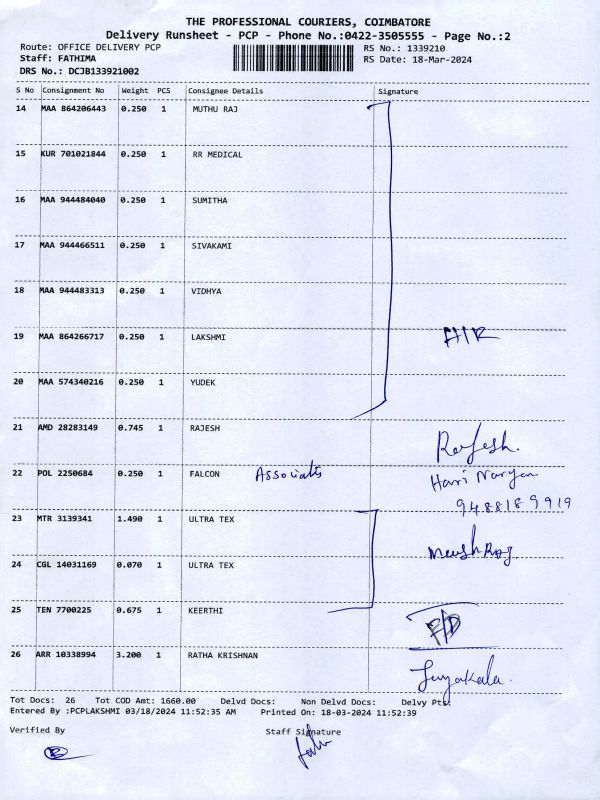 THE PROFESSIONAL COURIERS, COIMBATORE
Delivery Runsheet - PCP - Phone No.:0422-3505555 - Page No.:2
Route: OFFICE DELIVERY PCP RS No.: 1339210
Staff: FATHIMA RS Date: 18-Mar-2024
DRS No.: DCJB133921002
S No Consignment No Weight PCS Consignee Details Signature
14 MAA 864206443 0.250 1 MUTHU RAJ
15 KUR 701021844 0.250 1 RR MEDICAL
16 MAA 944484040 0.250 1 SUMITHA
17 MAA 944466511 0.250 1 SIVAKAMI
18 MAA 944483313 0.250 1 VIDHYA
19 MAA 864266717 0.250 1 LAKSHMI
20 MAA 574340216 0.250 1 YUDEK
21 AMD 28283149 0.745 1 RAJESH Rajesh.
22 POL 2250684 0.250 1 FALCON Associates Hari Naryan
9488189919
23 MTR 3139341 1.490 1 ULTRA TEX
24 CGL 14031169 0.070 1 ULTRA TEX
25 TEN 7700225 0.675 1 KEERTHI
26 ARR 10338994 3.200 1 RATHA KRISHNAN
Tot Docs: 26 Tot COD Amt: 1660.00 Delvd Docs: Non Delvd Docs: Delvy Pts:
Entered By :PCPLAKSHMI 03/18/2024 11:52:35 AM Printed On: 18-03-2024 11:52:39
Verified By Staff Signature